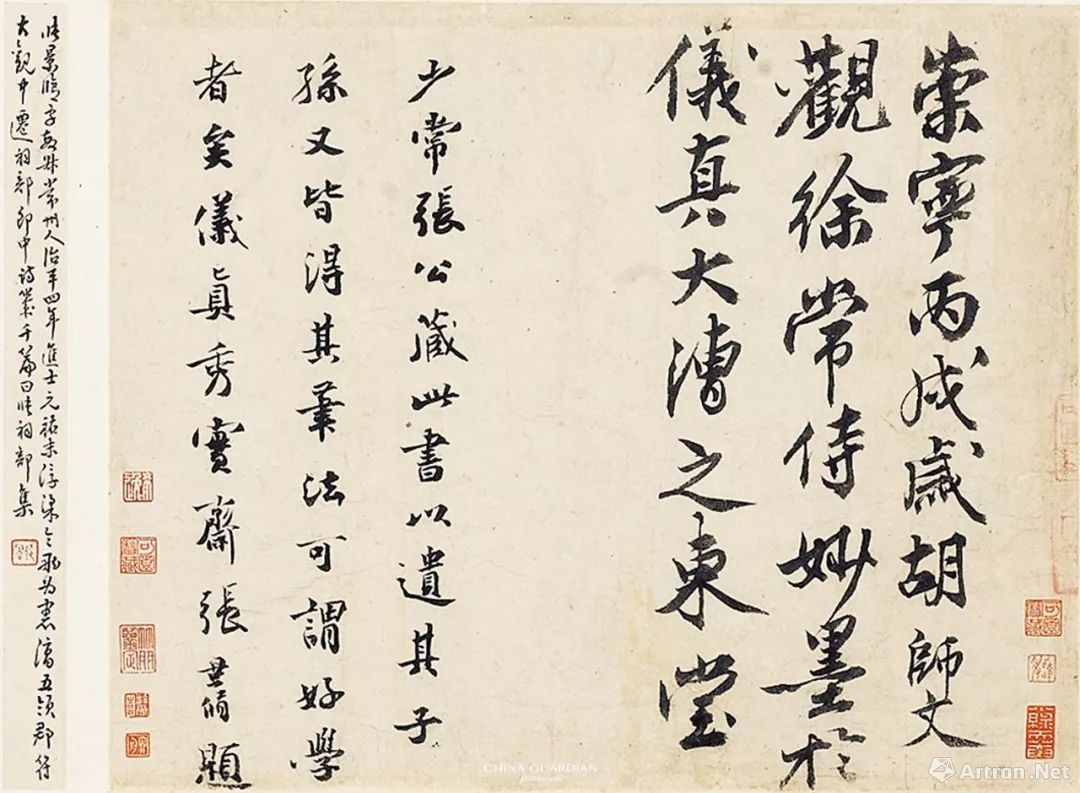 崇寧丙戌歲胡師文
觀徐常侍妙墨於
儀真大漕之東堂
少常張公藏此書以遺其子
孫又皆得其筆法可謂好學
者矣儀真秀實齋張景脩題
張景脩字敏叔常州人治平四年進士元祐末浮梁令兩為憲漕五領郡符
大觀中遷祠部郎中詩幾千篇曰張祠部集
CHINA GUARDIAN
Artron.Net